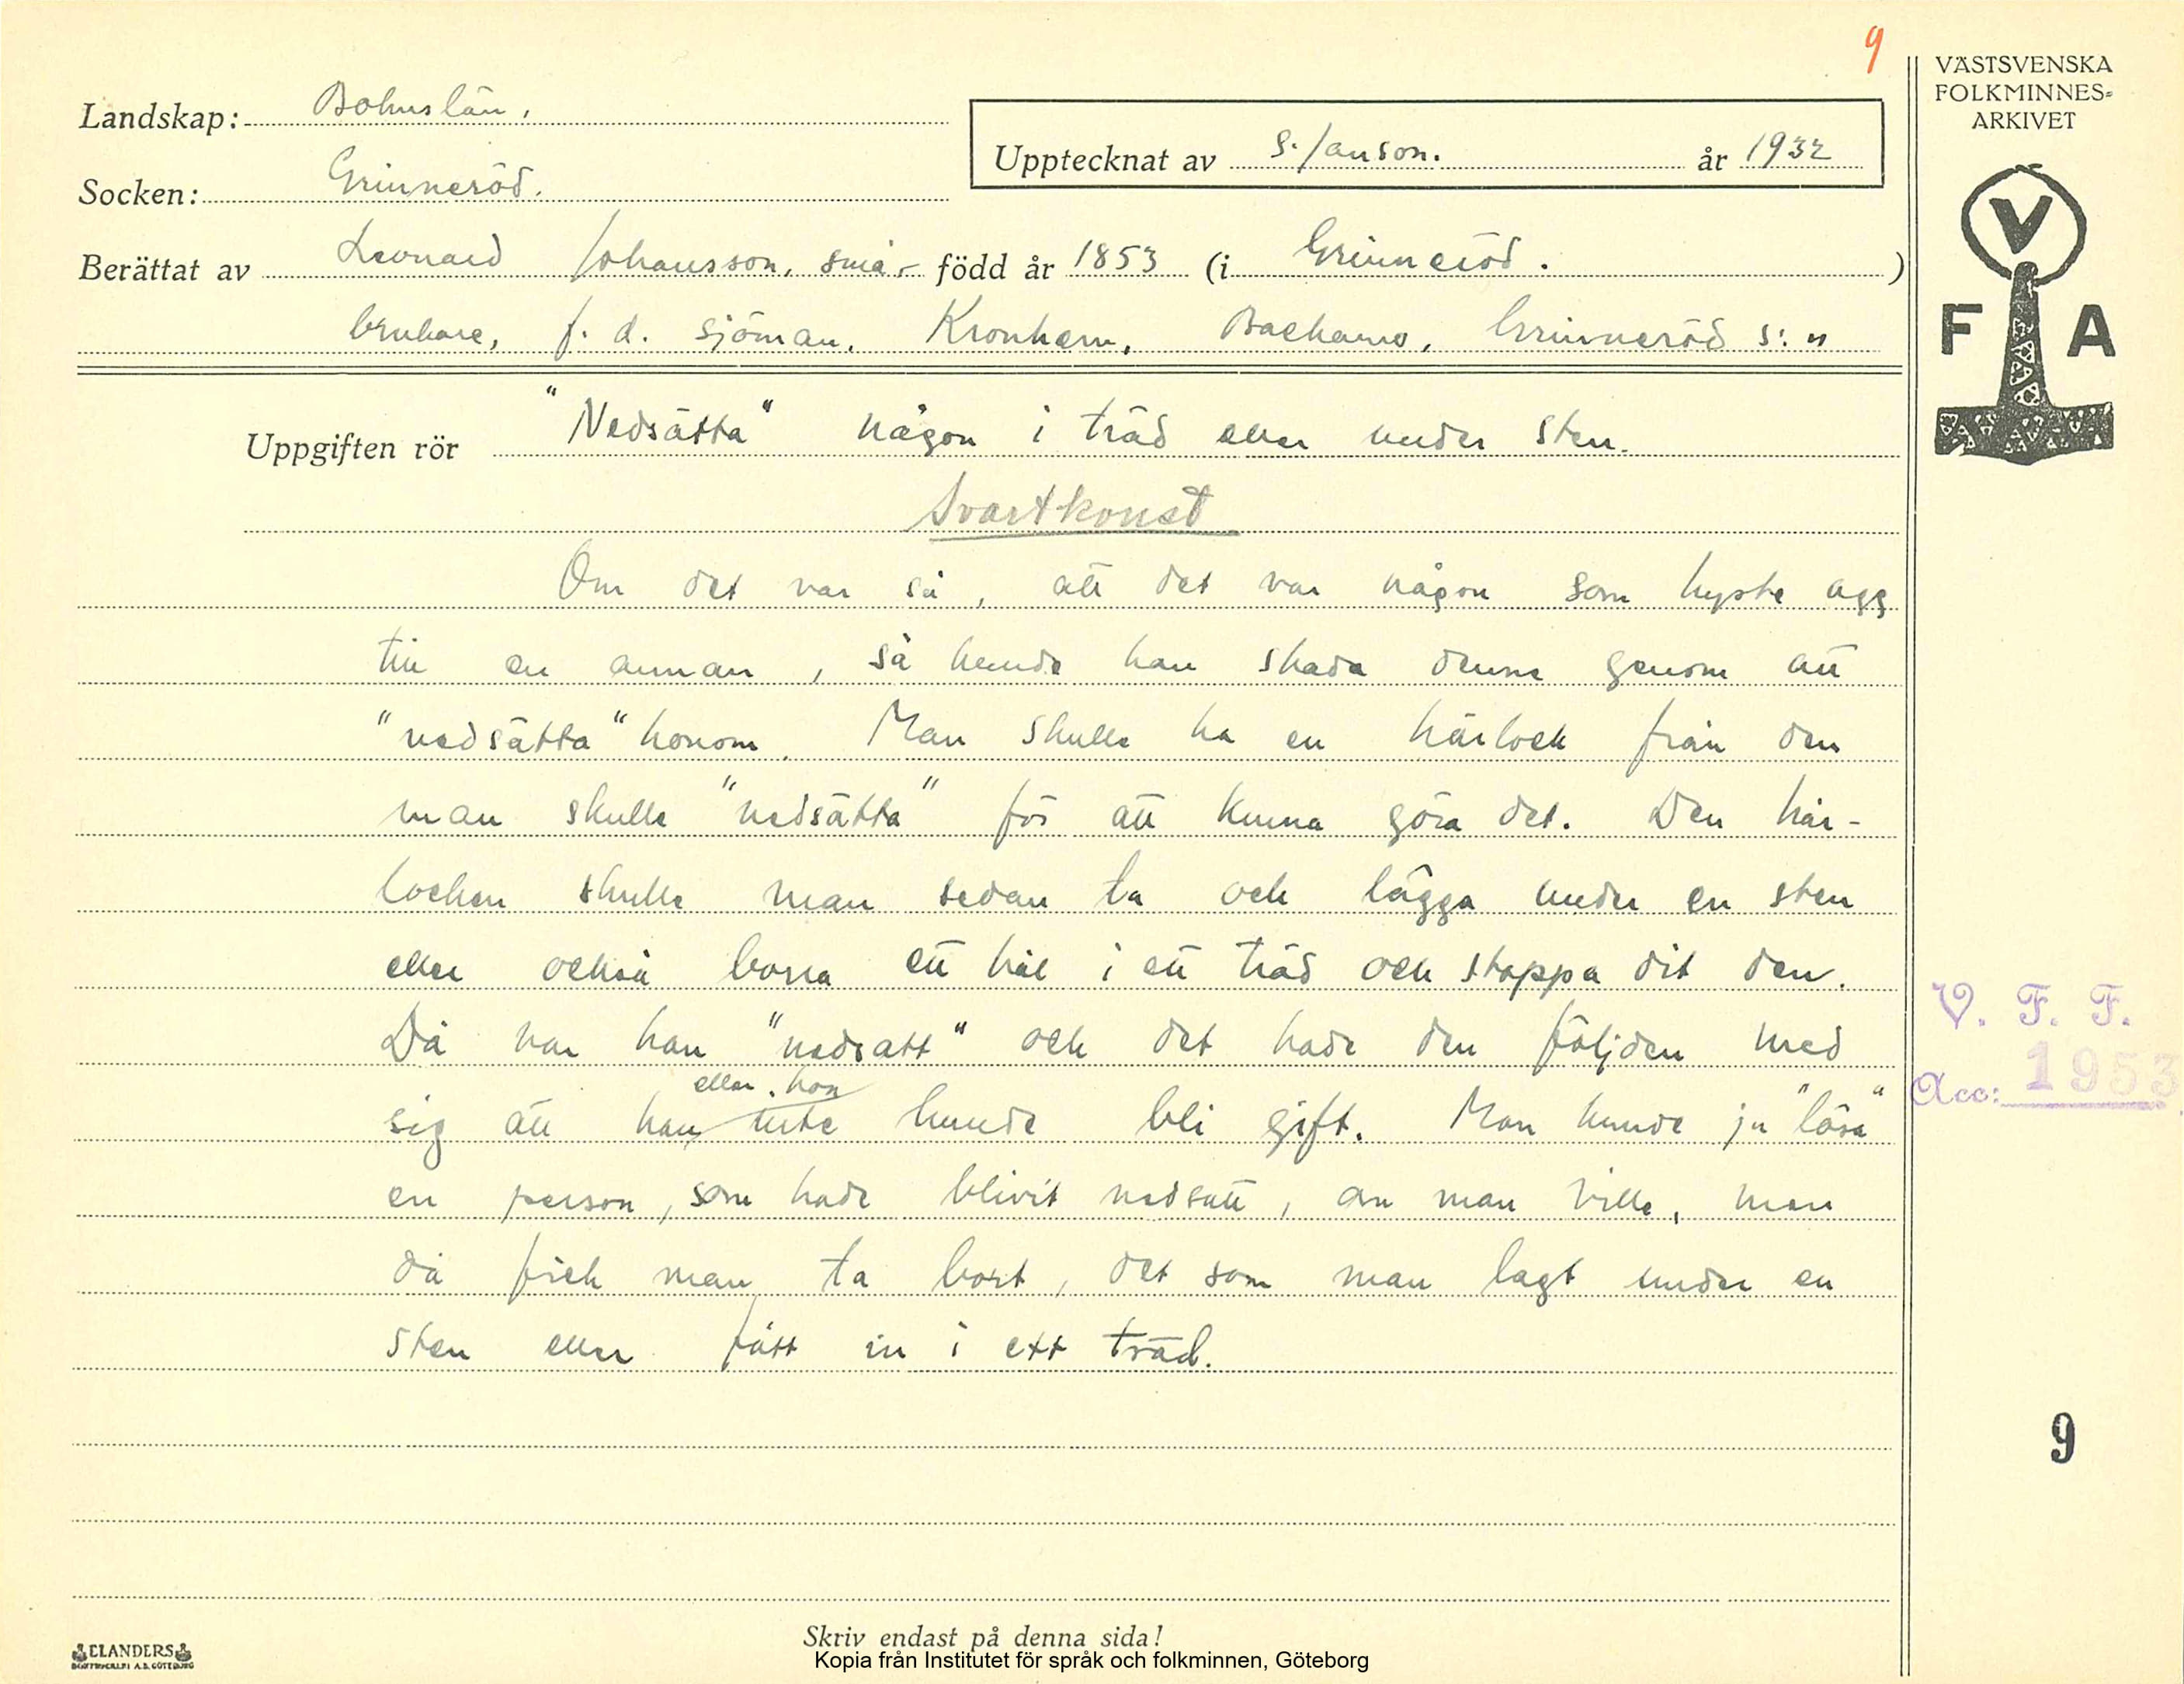 9
VÄSTSVENSKA
FOLKMINNES=
ARKIVET
Landskap: Bohuslän.
Upptecknat av S. Janson. år 1932
Socken: Grinneröd.
Berättat av Leonard Johansson, små- född år 1853 (i Grinneröd. )
brukare, f. d. sjöman. Kronhem, Backamo, Grinneröd s:n
V
F A
Uppgiften rör "Nedsätta" någon i träd eller under sten.
Svartkonst
Om det var så, att det var någon som hyste agg
till en annan, så kunde han skada denne genom att
"nedsätta" honom. Man skulle ha en hårlock från den
man skulle "nedsätta" för att kunna göra det. Den hår-
locken skulle man sedan ta och lägga under en sten
eller också borra ett hål i ett träd och stoppa dit den.
Då var han "nedsatt" och det hade den följden med
eller hon
sig att han inte kunde bli gift. Man kunde ju "lösa"
en person, som hade blivit nedsatt, om man ville, men
då fick man ta bort, det som man lagt under en
sten eller fått in i ett träd.
V. F. F.
Acc: 1953
9
Skriv endast på denna sida!
ELANDERS
BOKTRYCKERI A.B. GÖTEBORG
Kopia från Institutet för språk och folkminnen, Göteborg